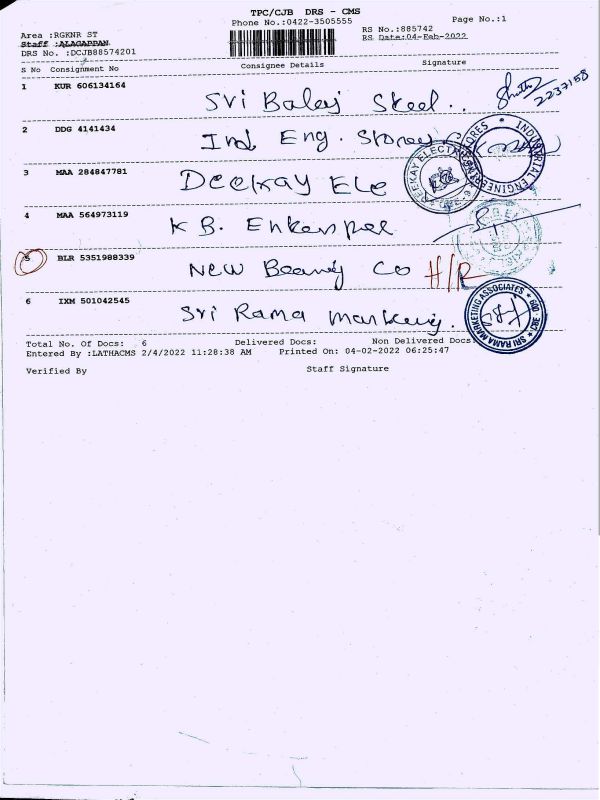 TPC/CJB DRS - CMS
Phone No.:0422-3505555 Page No.:1
Area :RGKNR ST RS No.:885742
Staff :ALAGAPPAN RS Date:04-Feb-2022
DRS No. :DCJB88574201
S No Consignment No Consignee Details Signature
1 KUR 606134164 Sri Balaj Steel..
2237158
2 DDG 4141434 Ind Eng. Stores
INDUSTRIAL ENGINEERING STORES
3 MAA 284847781 Deekay Ele
DEEKAY ELECT
4 MAA 564973119 K B. Enterprise
5 BLR 5351988339 New Bearing Co H/R
6 IXM 501042545 Sri Rama Marketing.
SRI RAMA MARKETING ASSOCIATES
Total No. Of Docs: 6 Delivered Docs: Non Delivered Docs:
Entered By :LATHACMS 2/4/2022 11:28:38 AM Printed On: 04-02-2022 06:25:47
Verified By Staff Signature